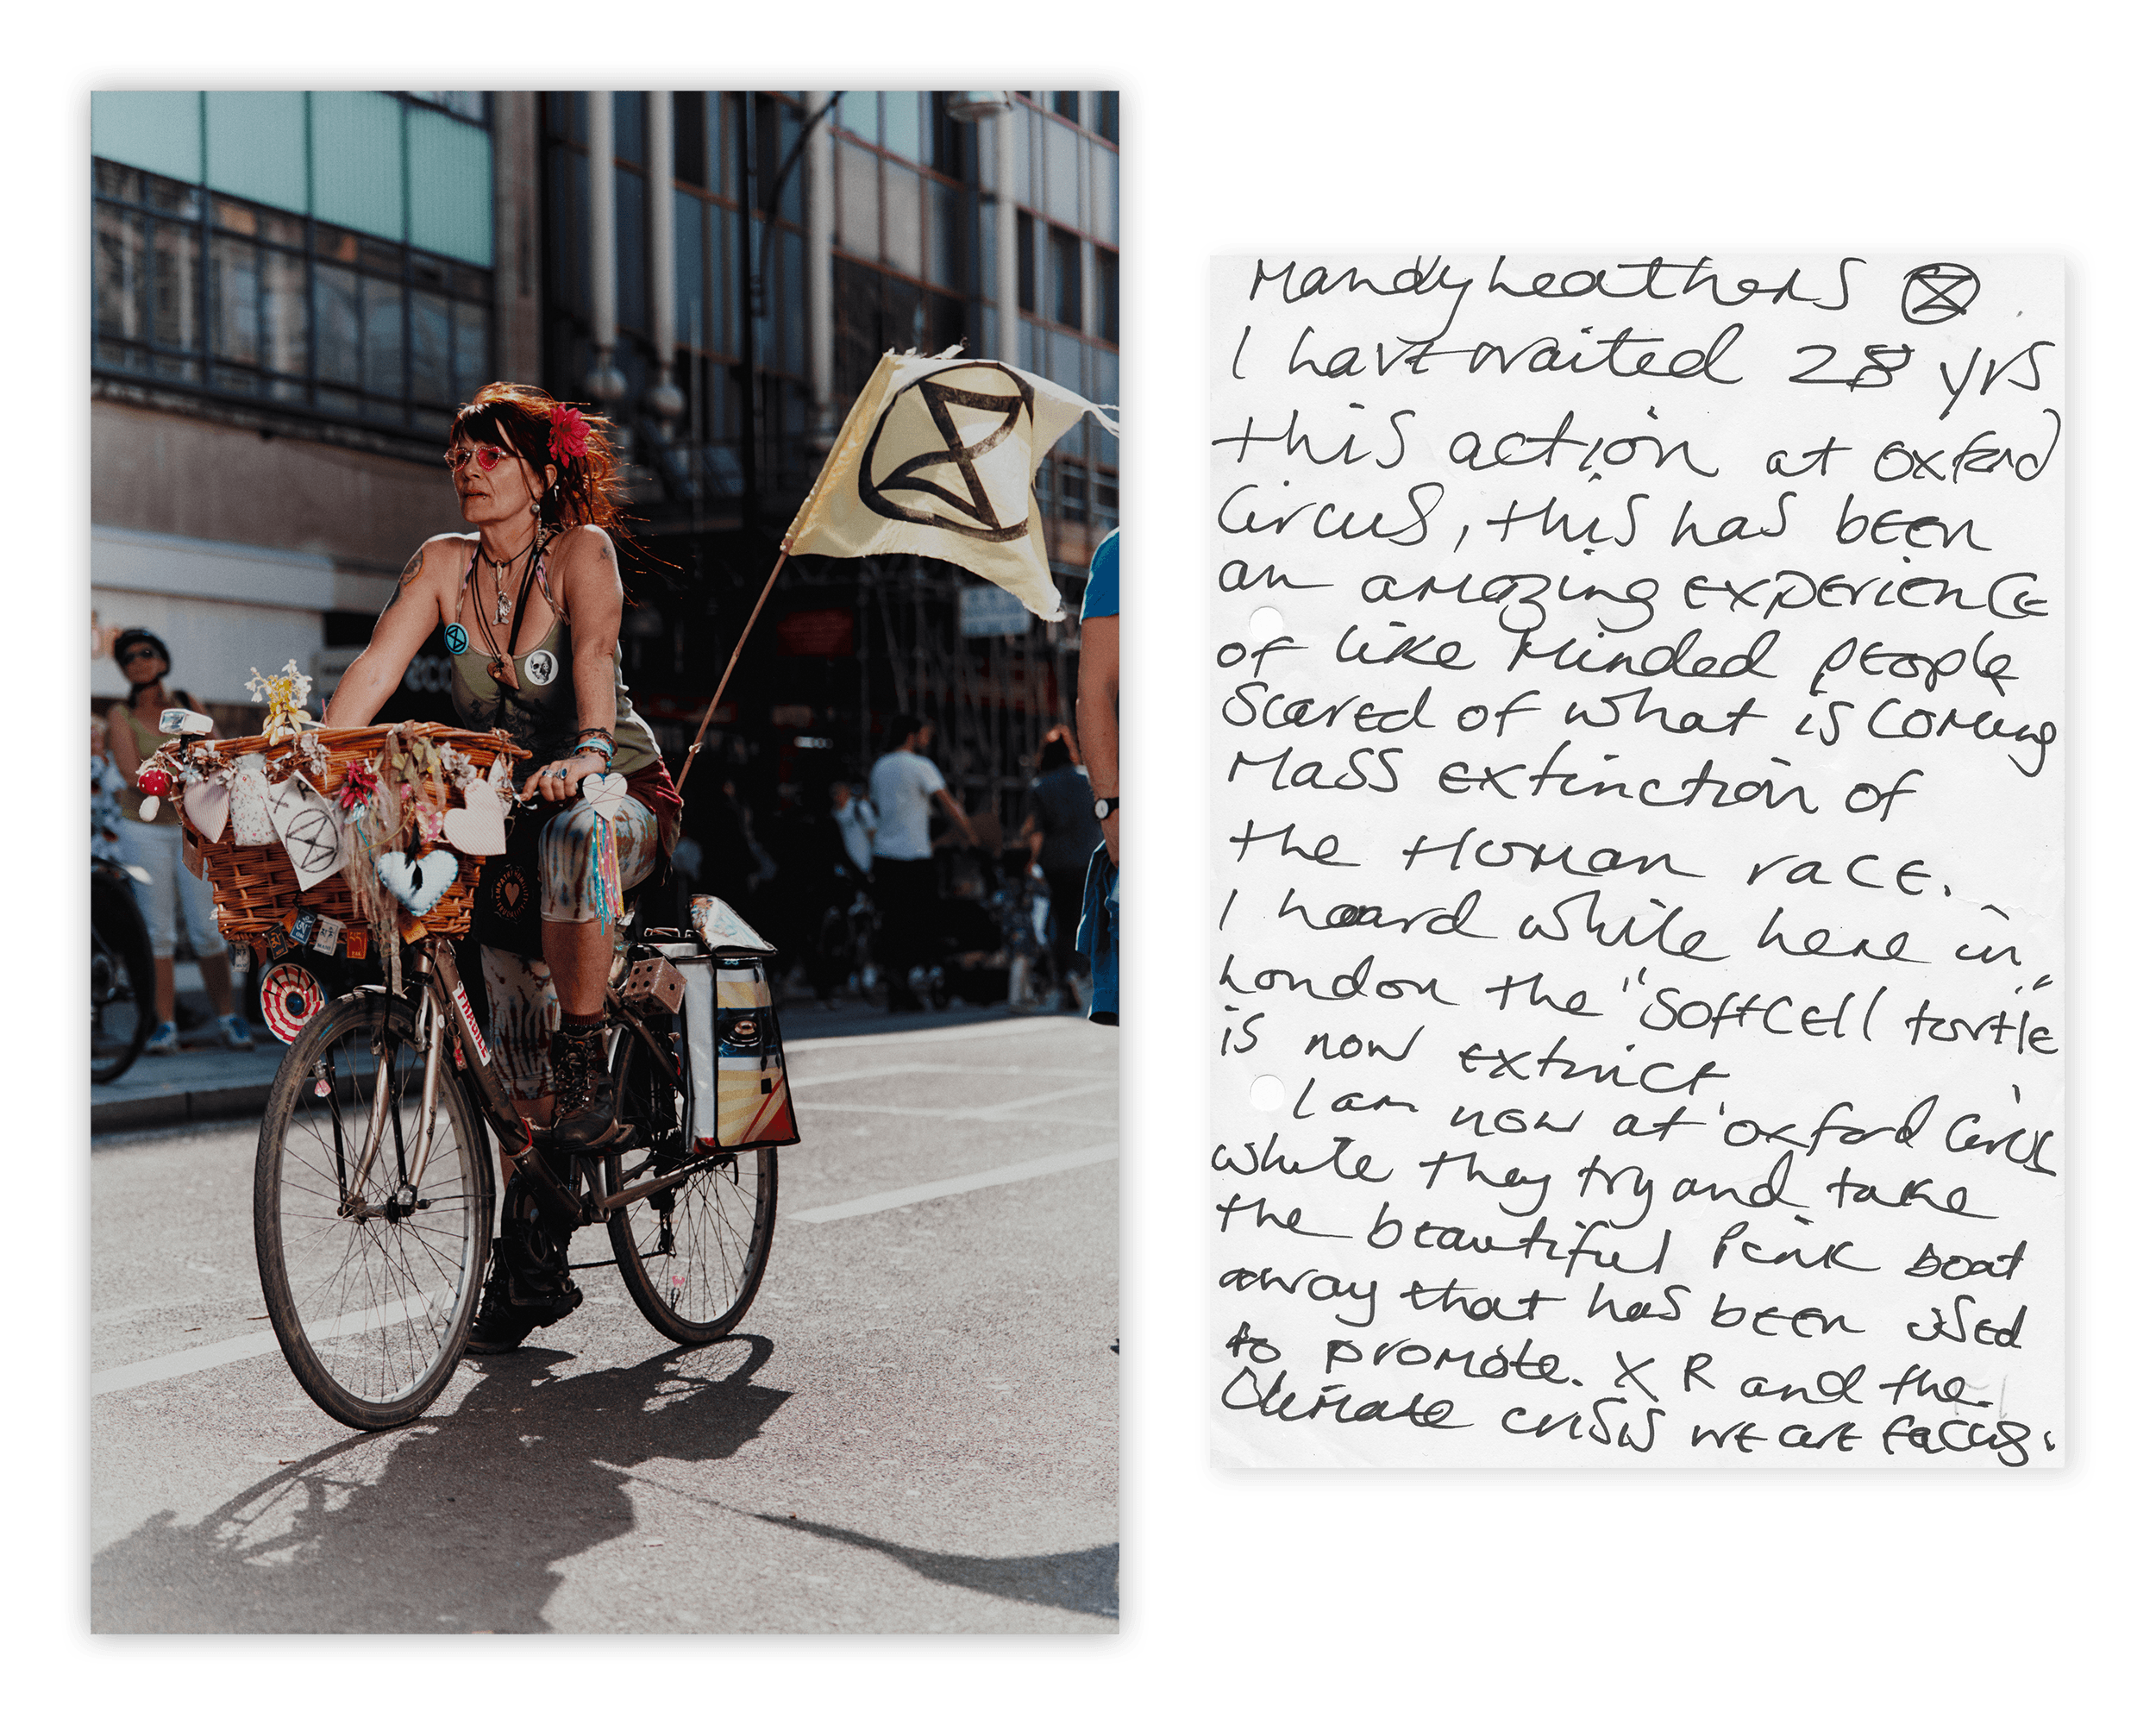 Mandy Leathers
I have waited 28 yrs
this action at oxford
Circus, this has been
an amazing experience
of like minded people
scared of what is coming
Mass extinction of
the Human race.
I heard while here in
London the "softcell turtle"
is now extinct
I am now at oxford Circus
while they try and take
the beautiful Pink boat
away that has been used
to promote. X R and the
Climate crisis we are facing.
FRAGILE
eco